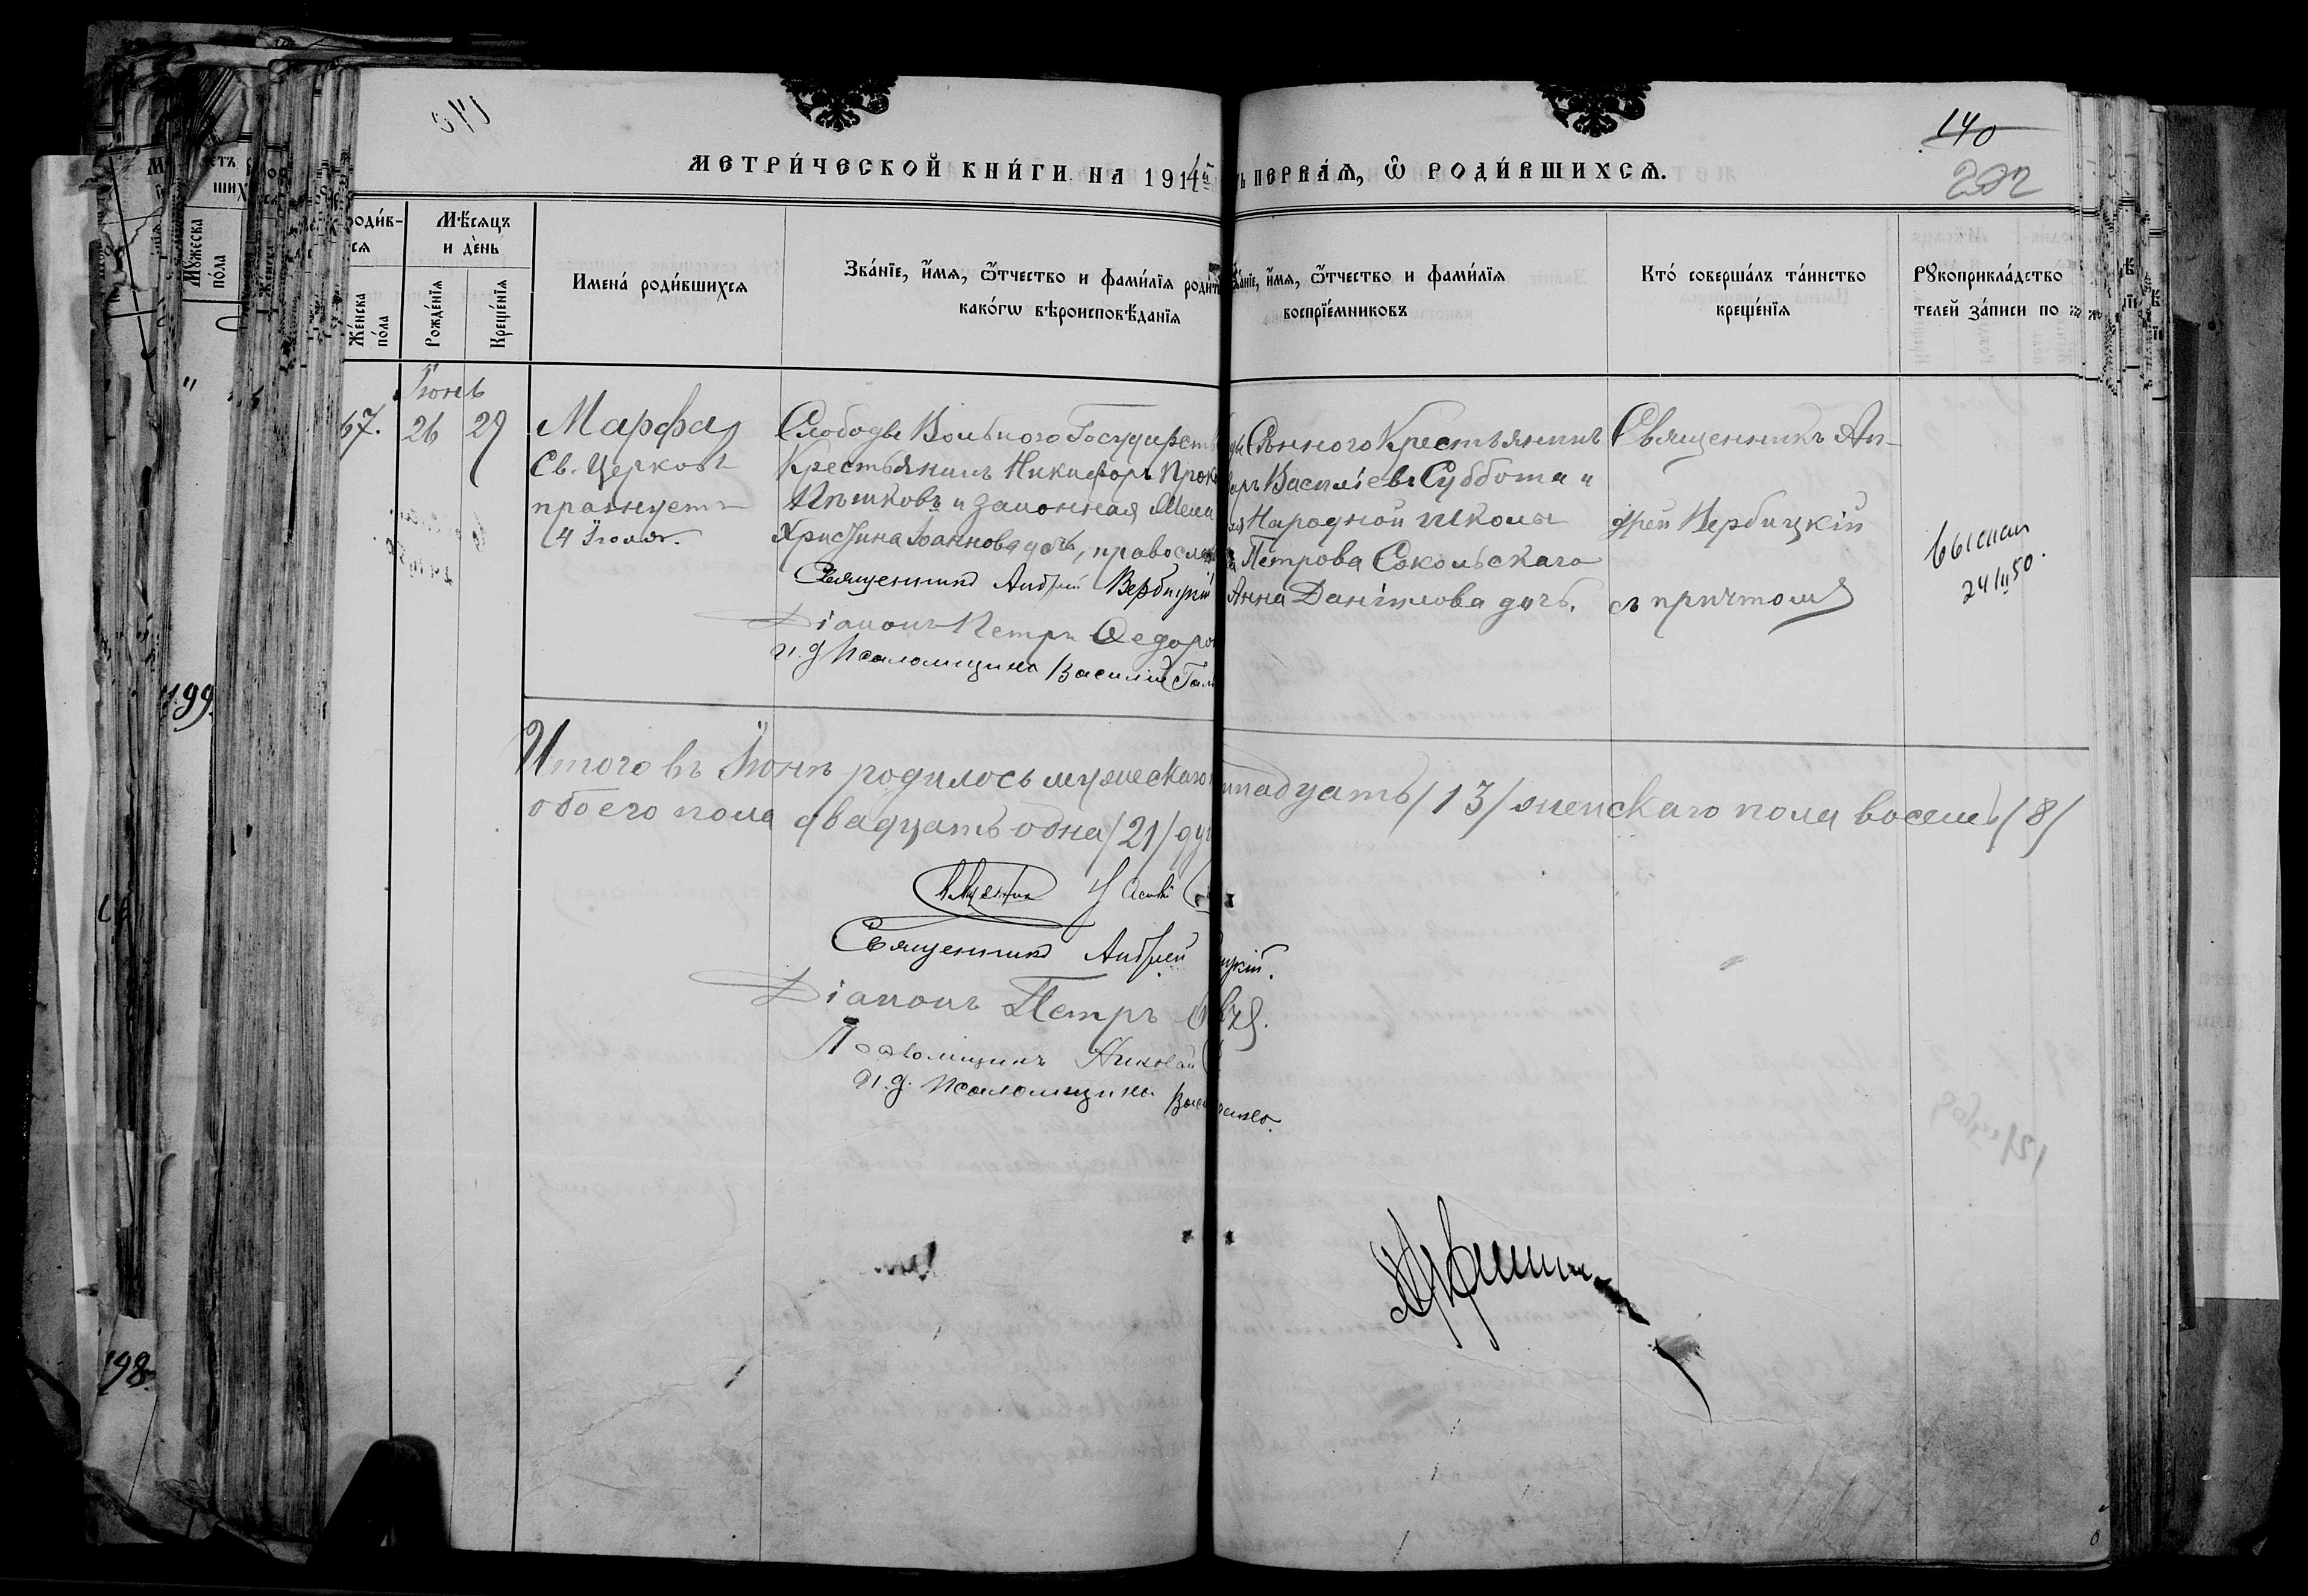 140
202
МЕТРИ́ЧЕСКОЙ КНИ́ГИ НА 1914й
ПЕРВАЯ, Ѡ РОДИ́ВШИХСЯ.
роди́в-
ся
Же́нска по́ла
Мѣ́сяцъ и де́нь
Рожде́нїя
Креще́нїя
Имена́ роди́вшихся
Зва́нїе, и́мя, ѻ҆́тчество и фами́лїя роди́т
како́гѡ вѣроисповѣ́данїя
Зва́нїе, и́мя, ѻ҆́тчество и фами́лїя
воспрїе́мниковъ
Кто́ соверша́лъ та́инство
креще́нїя
Рꙋкоприкла́дство
телей за́писи по
Іюнь
67.
26
29
Марфа
Св. Церковь
празнуетъ
4 Іюля.
Слободы Вольного Государств
Крестьянинъ Никифоръ Прок
Пѣшковъ и законная жена
Христина Іоаннова дочь, правосла
Священникъ Андрей Вербицкій
Діаконъ Петръ Федоро
и. д. Псаломщика Василій Гал
Крестьянинъ
Василіевъ Суббота и
Народной Школы
Петрова Сокольскаго
Анна Даніилова дочь.
Священникъ Ан-
дрей Вербицкій
съ причтомъ
выслан
24 III 50.
Итого въ Іюнѣ родилось мужескаго
надцать /13/ женскаго пола восемь /8/
обоего пола двадцать одна /21/ душ
Священникъ Андрей
цкій.
Діаконъ Петръ
Псаломщикъ Николай
и. д. Псаломщика Васи
ченко.
199.
198